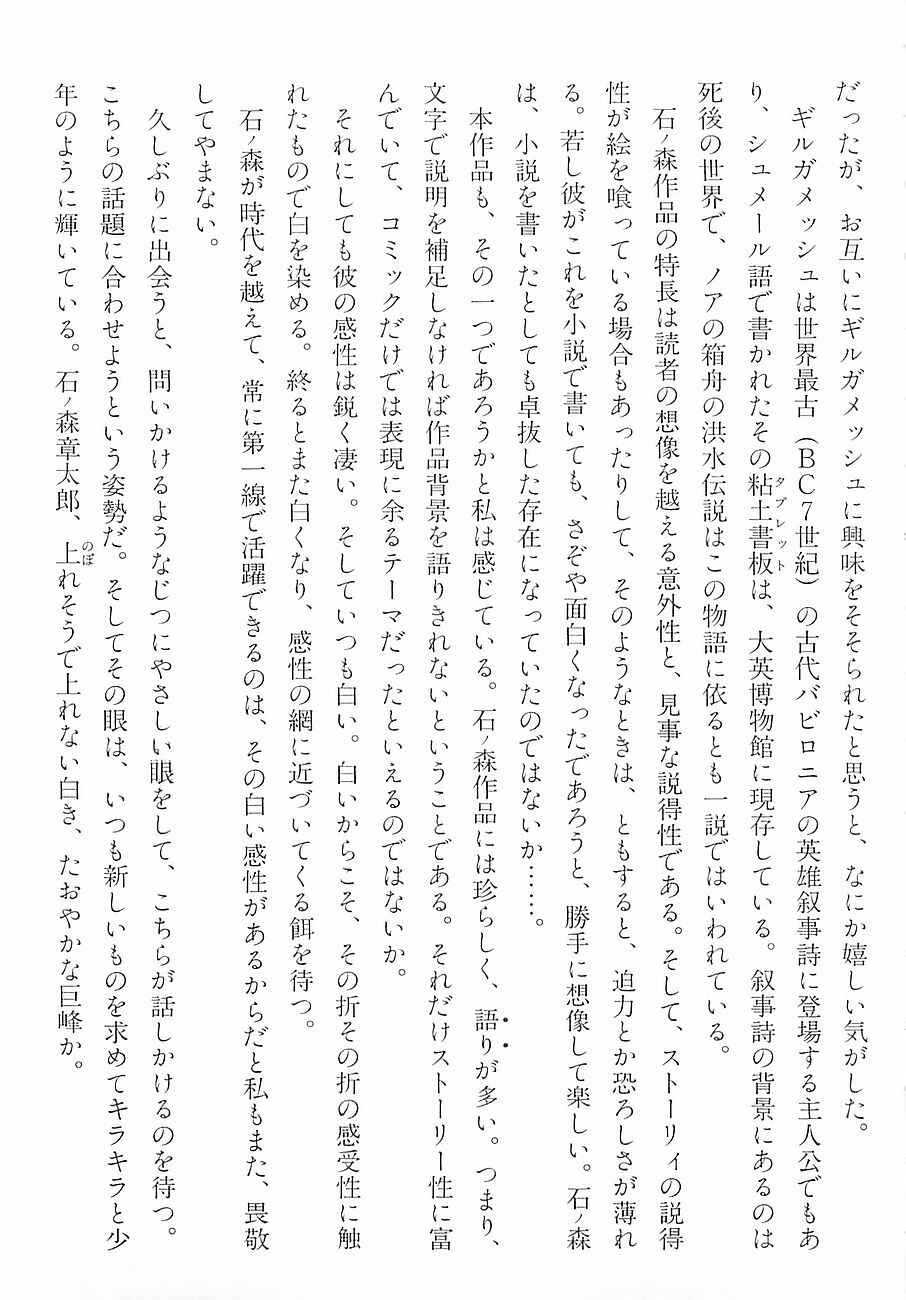 だったが、お互いにギルガメッシュに興味をそそられたと思うと、なにか嬉しい気がした。
ギルガメッシュは世界最古（ＢＣ７世紀）の古代バビロニアの英雄叙事詩に登場する主人公でもあ
り、シュメール語で書かれたその粘土書板タブレットは、大英博物館に現存している。叙事詩の背景にあるのは
死後の世界で、ノアの箱舟の洪水伝説はこの物語に依るとも一説ではいわれている。
石ノ森作品の特長は読者の想像を越える意外性と、見事な説得性である。そして、ストーリィの説得
性が絵を喰っている場合もあったりして、そのようなときは、ともすると、迫力とか恐ろしさが薄れ
る。若し彼がこれを小説で書いても、さぞや面白くなったであろうと、勝手に想像して楽しい。石ノ森
は、小説を書いたとしても卓抜した存在になっていたのではないか……。
本作品も、その一つであろうかと私は感じている。石ノ森作品には珍らしく、語りが多い。つまり、
文字で説明を補足しなければ作品背景を語りきれないということである。それだけストーリー性に富
んでいて、コミックだけでは表現に余るテーマだったといえるのではないか。
それにしても彼の感性は鋭く凄い。そしていつも白い。白いからこそ、その折その折の感受性に触
れたもので白を染める。終るとまた白くなり、感性の網に近づいてくる餌を待つ。
石ノ森が時代を越えて、常に第一線で活躍できるのは、その白い感性があるからだと私もまた、畏敬
してやまない。
久しぶりに出会うと、問いかけるようなじつにやさしい眼をして、こちらが話しかけるのを待つ。
こちらの話題に合わせようという姿勢だ。そしてその眼は、いつも新しいものを求めてキラキラと少
年のように輝いている。石ノ森章太郎、上のぼれそうで上れない白き、たおやかな巨峰か。